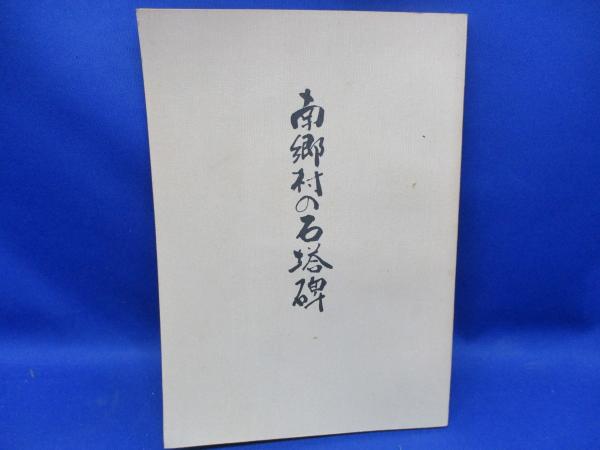 南郷村の石塔碑